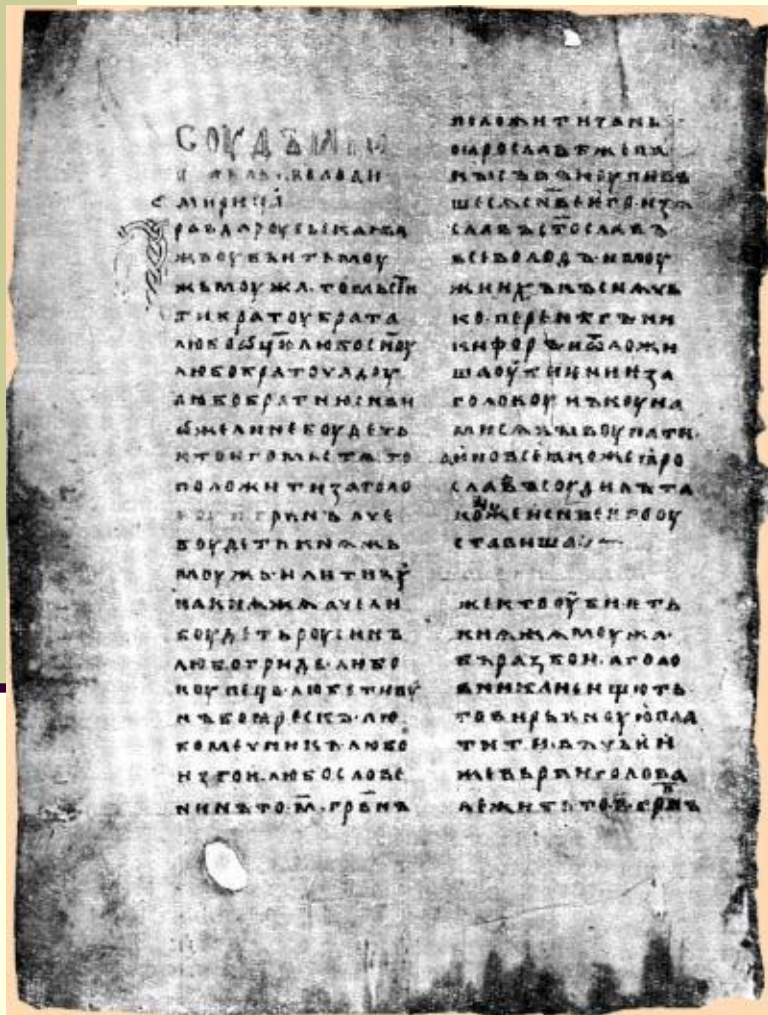 СОУДЪ
ВОЛОДИ
МИРИЦА
РАВДАРОУСЬСКАꙖА
ЖЬОУБЬІЄТЬМОУ
ЖЬМОУЖА·ТОМЬСТИ
ТИБРАТОУБРАТА
ЛЮБОѾЦЮЛЮБОСН҃ОУ
ЛЮБОБРАТОУАДОУ
ЛЮБОБРАТНЮСН҃ВИ
ѾЖЕЛИНЕБОУДЕТЬ
КТОѤГОМЬСТѦ·ТО
ПОЛОЖИТИЗАГОЛО
ГРВ҃НЪАЧЕ
БОУДЕТЬКНѦЖЬ
МОУЖЬ·ИЛИТИВОУ
НАКНѦЖѦАЧЕЛИ
БОУДЕТЬРОУСИНЪ
ЛЮБОГРИДЬ·ЛЮБО
КОУПЕЦЬ·ЛЮБОТИВОУ
НЪБОꙖРЕСКЪ·ЛЮ
БОМЕЧНИКЪ·ЛЮБО
ИЗГОИ·ЛЮБОСЛОВЕ
НИНЪТО·М҃·ГРВ҃НЪ
ПОЛОЖИТИЗАНЬ
ОЯРОСЛАВѢЖЕПА
КЫСЪВЪКОУПИВЪ
ШЕСѦСН҃ВЕѤГО·ИЗѦ
СЛАВЪСТ҃ОСЛАВЪ
ВСЕВОЛОДЪ·ИМОУ
ЖИИХЪКЪСНѦЧЬ
КО·ПЕРЕНѢГЪНИ
КИФОРЪИѾЛОЖИ
ШАОУБИЄНИЄЗА
ГОЛОВОУНЪКОУНА
МИСѦВЫКОУПАТИ·
АИНОВСЕꙖКОЖЕꙖРО
СЛАВЪСОУДИЛЪТА
КОЖЕИСН҃ВЕѤГООУ
СТАВИША
ЖЕКТООУБИѤТЬ
КНѦЖАМОУЖА·
ВЪРАЗБОИ·АГОЛО
ВНИКАНЕИЩЮТЬ·
ТОВИРЬВНОУЮПЛА
ТИТИ·ВЪЧЬѤИ
ЖЕВЬРВИГОЛОВА
ЛЕЖИТЬТО·П҃·ГРВ҃НЪ